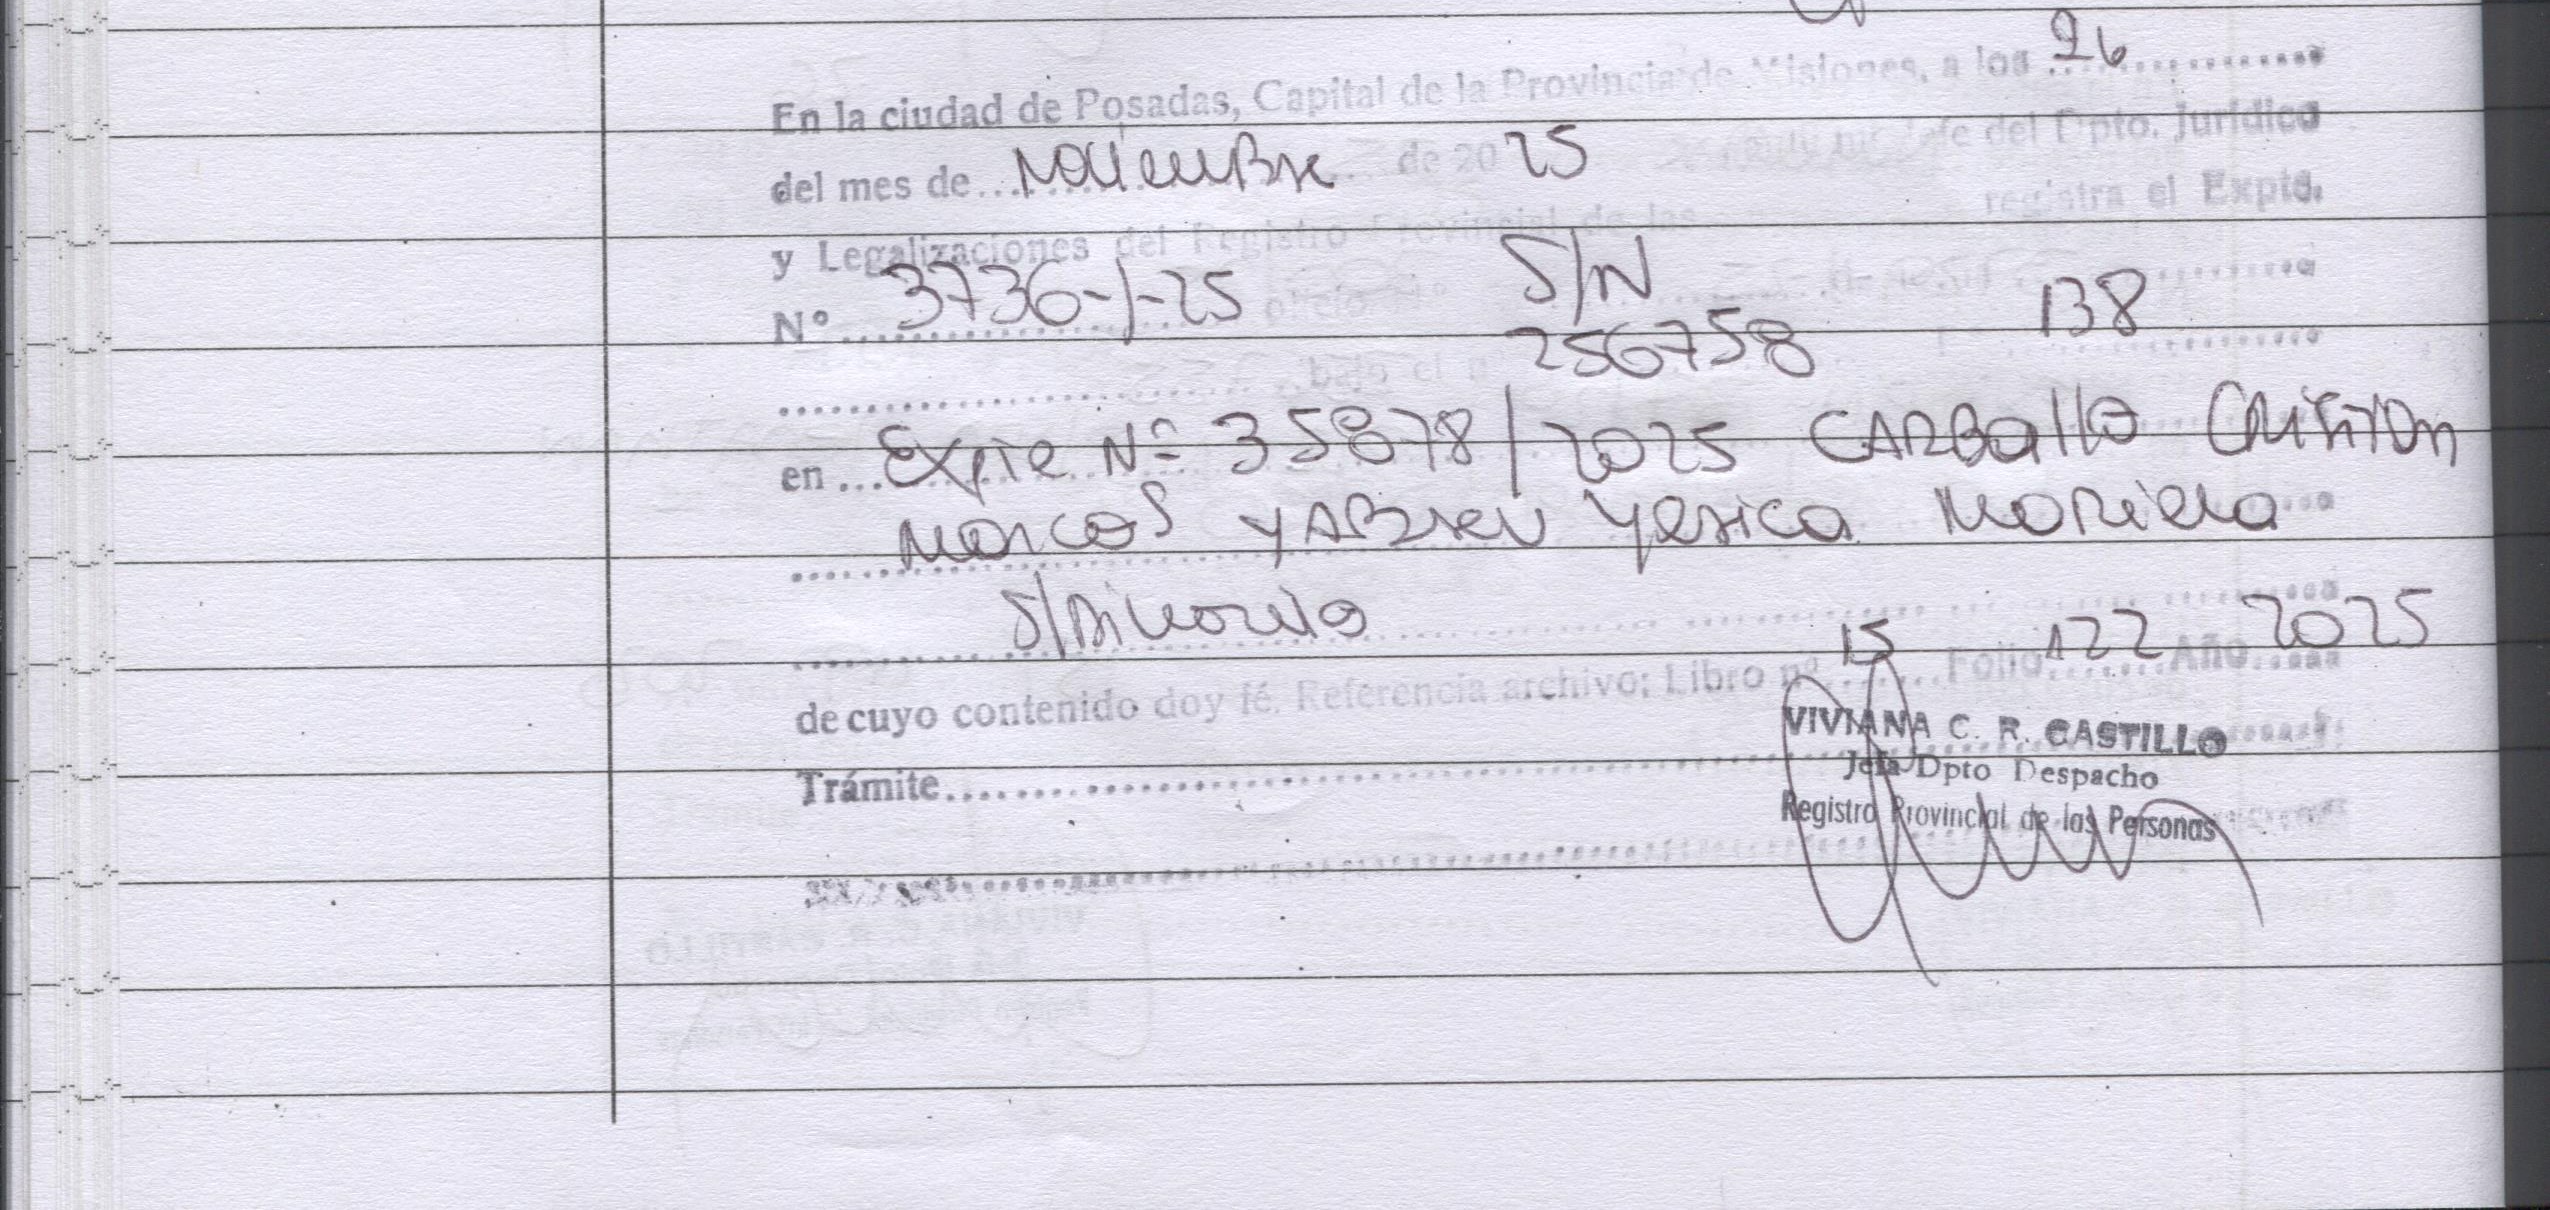 En la ciudad de Posadas, Capital de la Provincia de Misiones, a los 26
del mes de Noviembre de 20 25 Jefe del Dpto. Jurídico
y Legalizaciones del Registro Provincial de las registra el Expte.
N° 3736-1-25 oficio n° S/N
bajo el n° 256758 138
en Expte Nº 35878/2025 CARBallo Cristian
Marcos y ABREU Yesica Mariela
S/Divorcio
de cuyo contenido doy fé. Referencia archivo: Libro nº 15 Folio 122 Año 2025
Trámite
VIVIANA C. R. CASTILLO
Jefa Dpto Despacho
Registro Provincial de las Personas